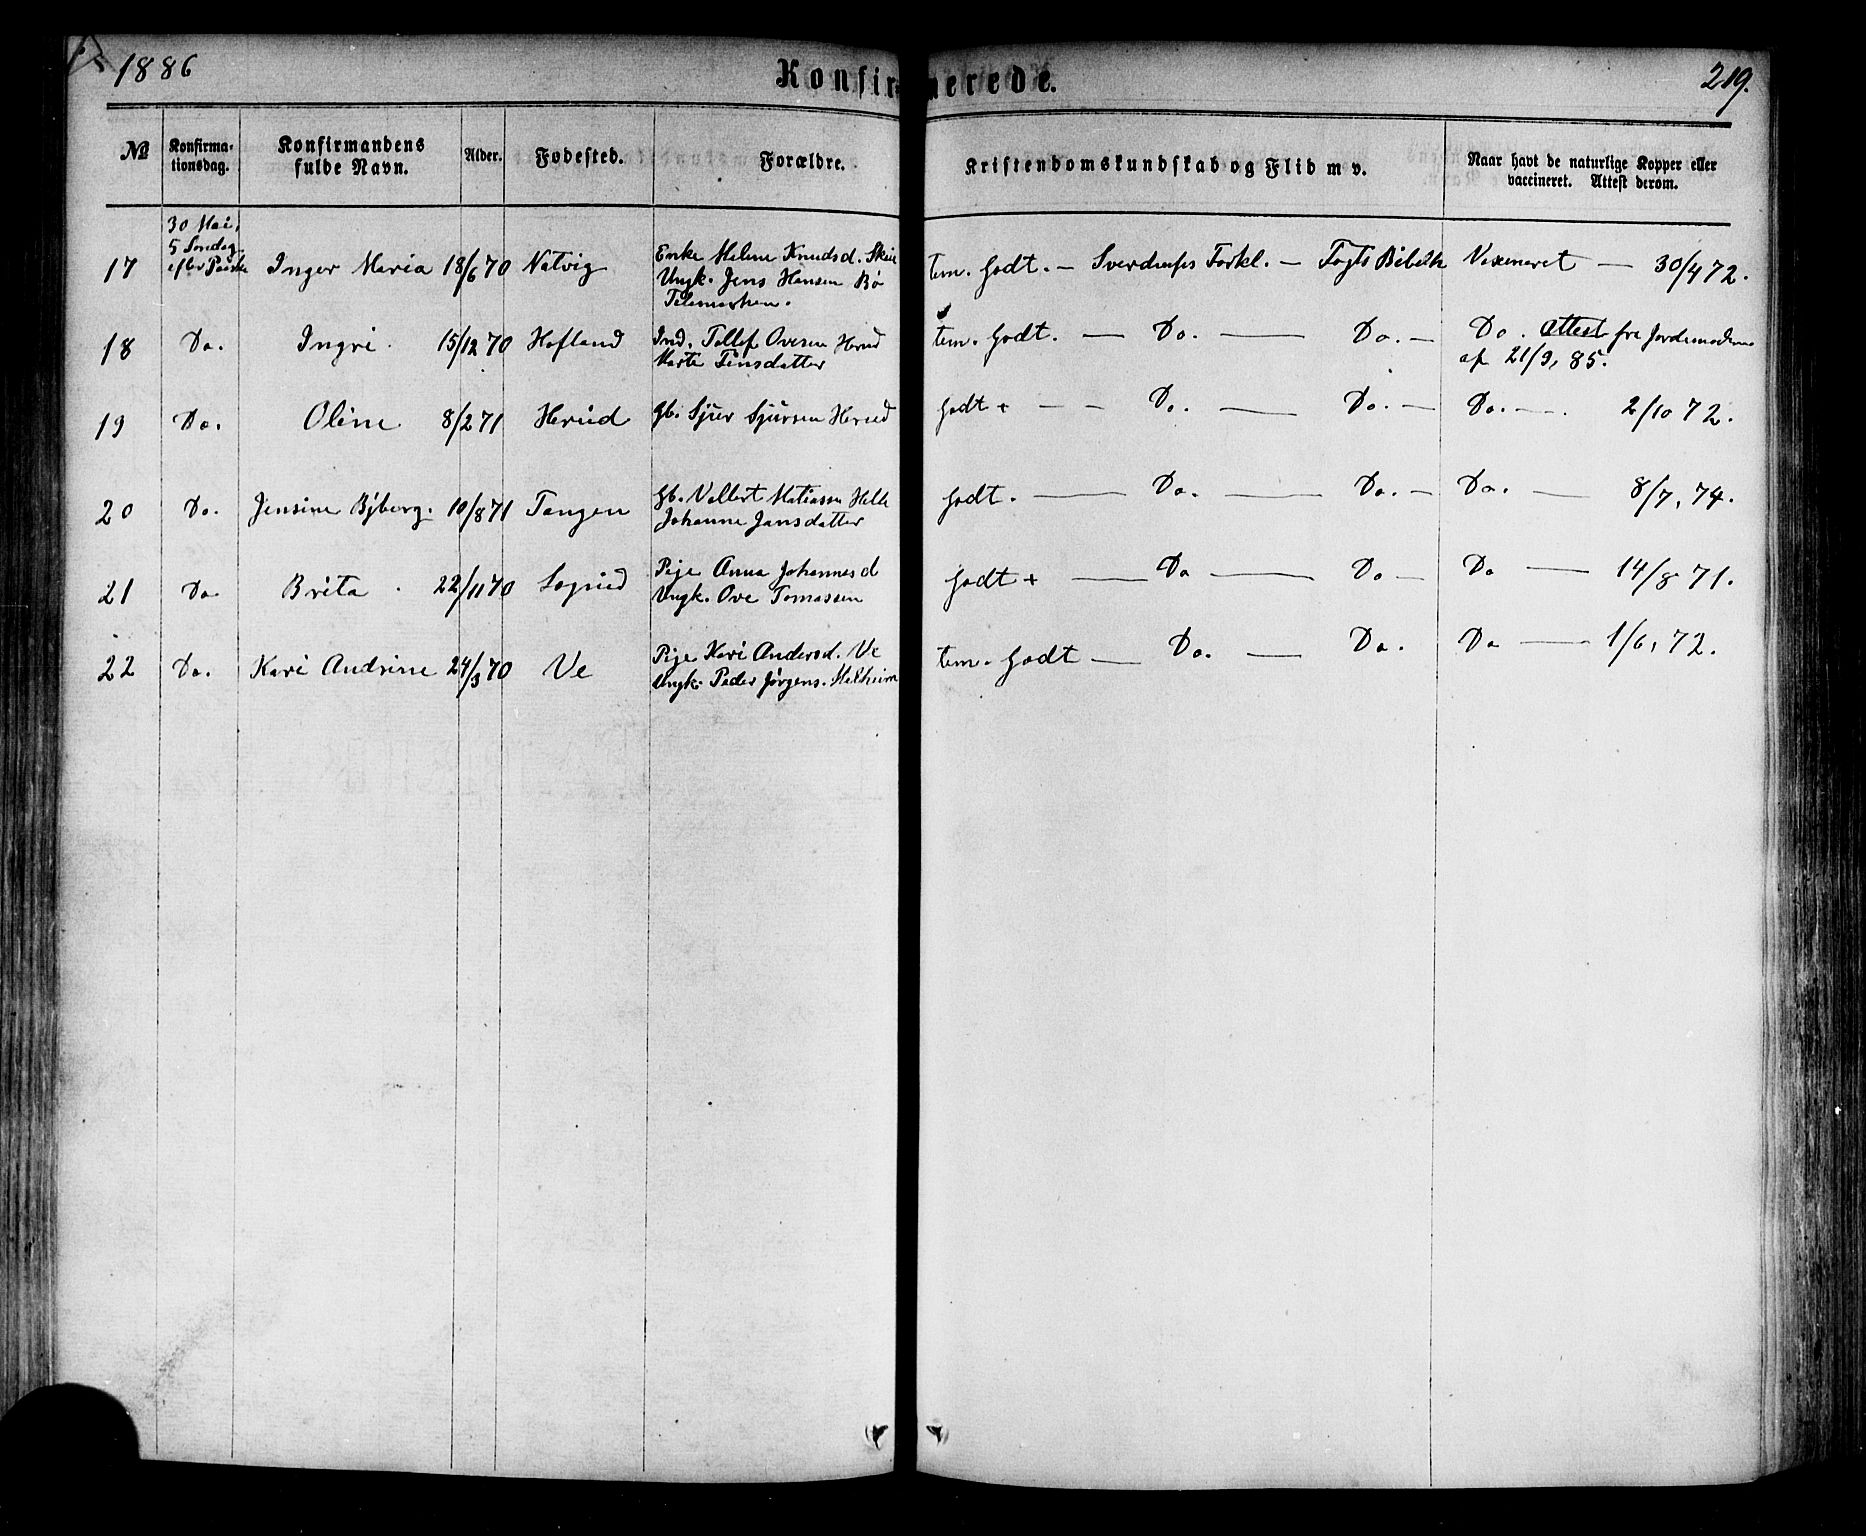 1886 Konfirmerede. 219.
№ Konfirma-tionsdag. Konfirmandens fulde Navn. Alder. Fødested. Forældre. Kristendomskundskab og Flid m v. Naar havt de naturlige Kopper eller vaccineret. Attest derom.
30 Mai,
5 Søndag
efter Paaske
17 Inger Maria 18/6 70 Natvig Enke Helene Knudsd. Skei tem. godt. — Sverdrups Forkl. — Fogts Bibelh Vaxineret — 30/4 72.
Ungk. Jens Hansen Bø
Telemarken.
18 Do. Ingri. 15/12 70 Hafland Ind. Tollef Ovesen Herud tem. godt. — Do. — Do. — Do. Attest fra Jordemoderen
Marte Finsdatter af 21/9, 85.
19 Do. Oline 8/2 71 Herud gb. Sjur Sjursen Herud godt + — — Do. — Do. — Do. — 2/10 72.
20 Do. Jensine Bjberg. 10/8 71 Tangen gb. Vollert Matiassen Helle godt. — Do. — Do. — Do. — 8/7, 74.
Johanne Jansdatter
21 Do Brita 22/11 70 Sognid Pige Anna Johannesd godt + — Do — Do — Do — 14/8 71.
Ungk. Ove Tomassen
22 Do. Kari Andrine 24/3 70 Ve Pige Kari Andersd. Ve tem. godt — Do. — Do. Do — 1/6, 72.
Ungk. Peder Jørgens. Melheim